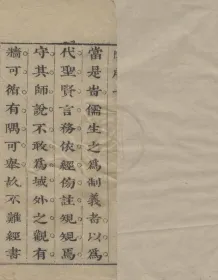 當是皆儒生之為制義者以為
代聖賢言務依經傍註規規焉
守其師說不敢為域外之觀有
牆可循有隅可舉故不離經書